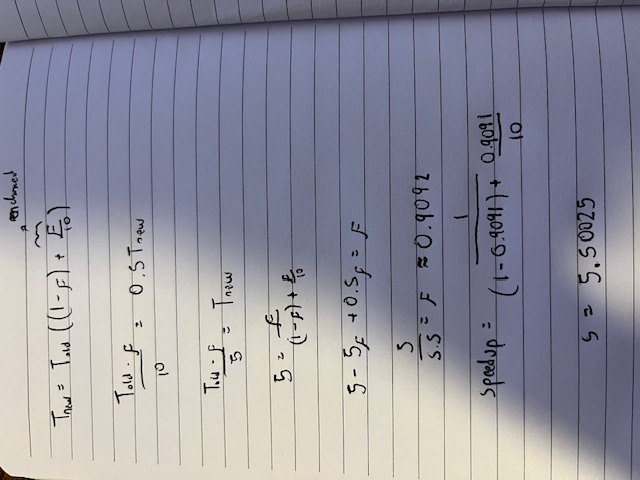 enchanced
Tnew = Told ((1-F) + F/10)
Told · F / 10 = 0.5 Tnew
Told · F / 5 = Tnew
5 = F / (1-F) + F/10
5 - 5F + 0.5F = F
5 / 5.5 = F ≈ 0.9092
Speedup = 1 / (1-0.9091) + 0.9091/10
s = 5.50025